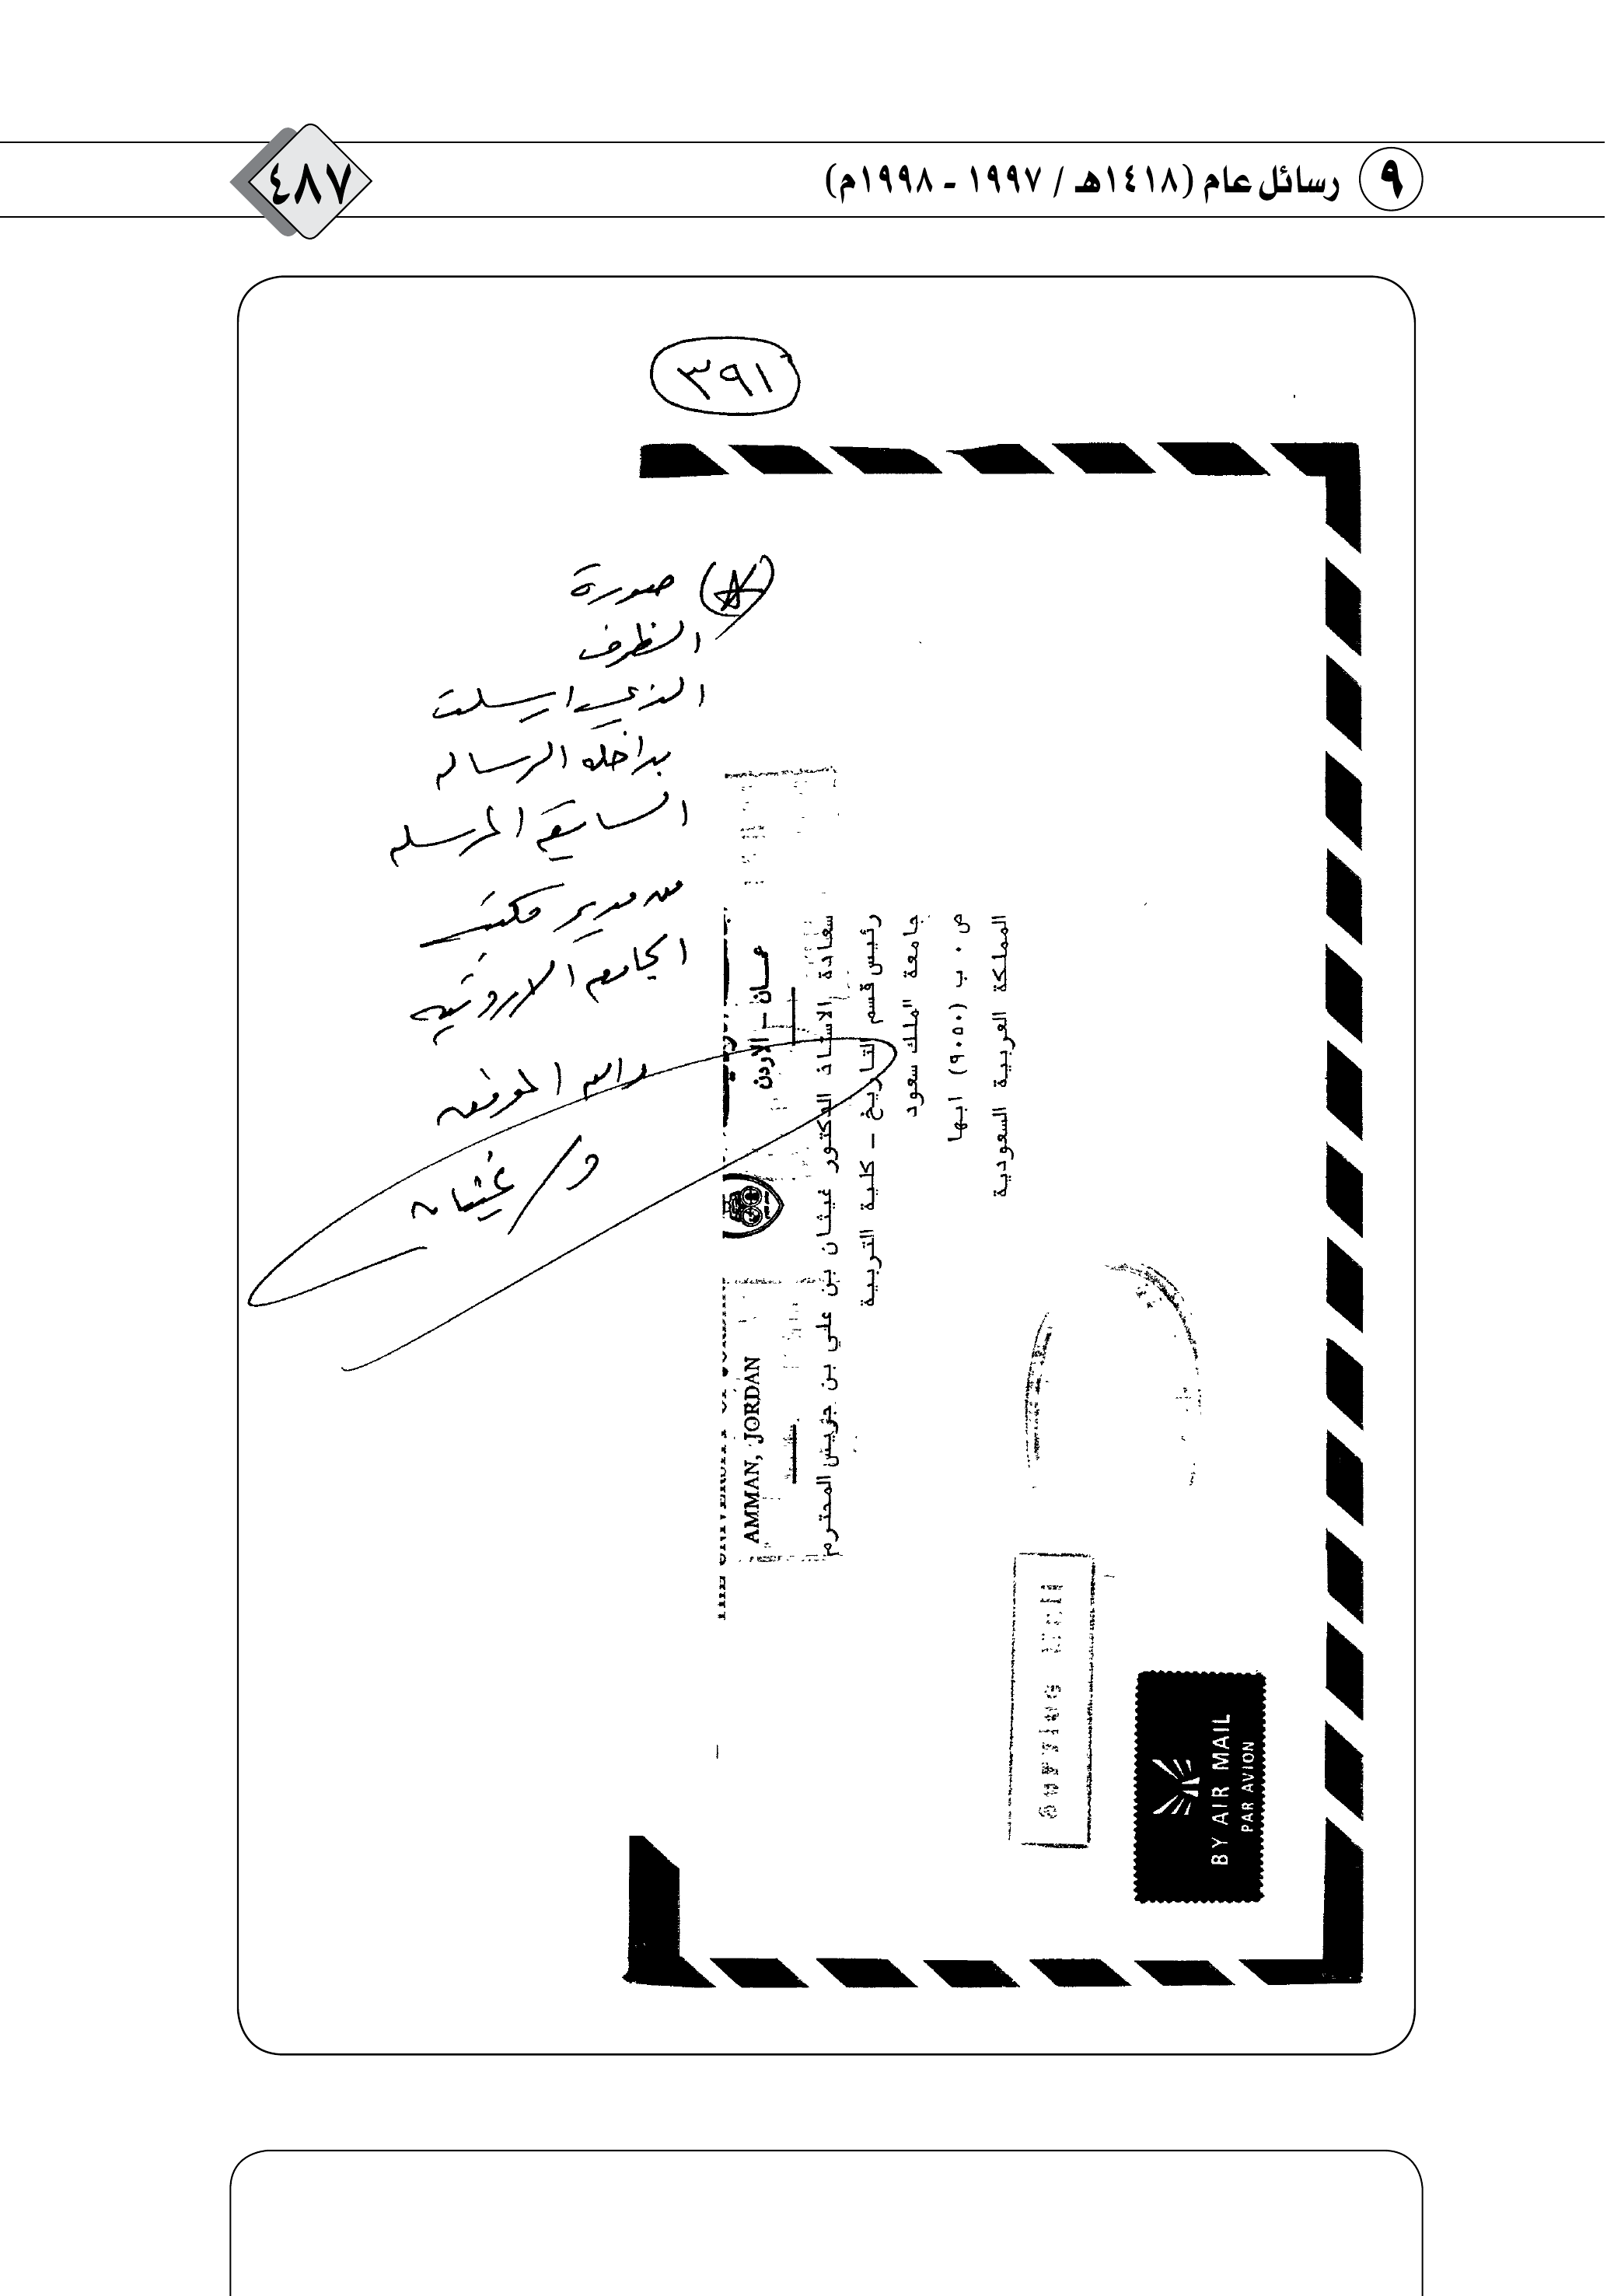 ٩ رسائل عام (١٤١٨هـ / ١٩٩٧ - ١٩٩٨م)
٤٨٧
٣٩١
صورة
الظرف
الذي ارسلت
بداخله الرساله
السابقه المرسله
من مدير مكتب
الجامعه الاردنيه
والله الموفق
د/ غيثان
عمـان - الاردن
THE UNIVERSITY OF JORDAN
AMMAN, JORDAN
سعادة الاستاذ الدكتور غيثان بن علي بن جريس المحترم
رئيس قسم التاريخ - كلية التربية
جامعة الملك سعود
ص . ب (٩٠٥٠) ابها
المملكة العربية السعودية
BY AIR MAIL
PAR AVION